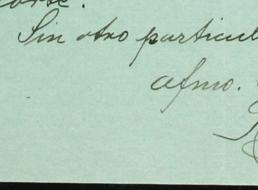 Sin otro particul
afmo.